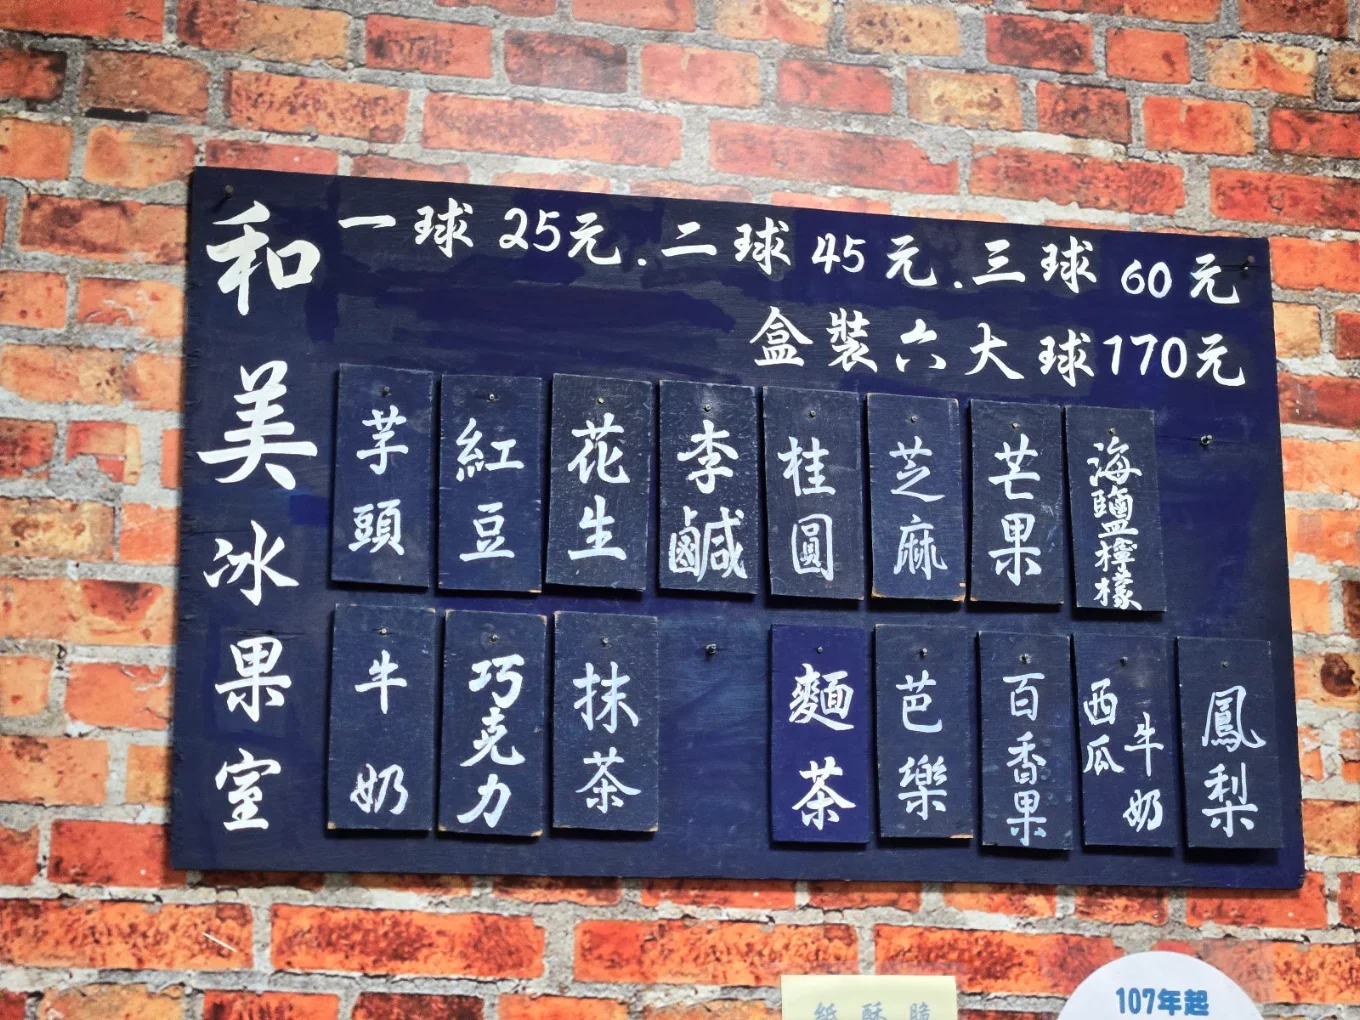 和美冰果室
一球25元.二球45元.三球60元
盒裝六大球170元
芋頭
紅豆
花生
李鹹
桂圓
芝麻
芒果
海鹽檸檬
牛奶
巧克力
抹茶
麵茶
芭樂
百香果
西瓜牛奶
鳳梨
紙酥脆
107年起